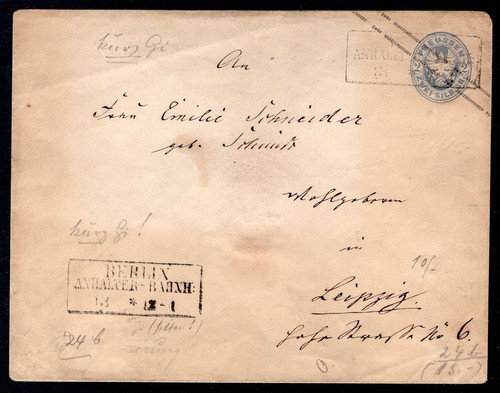 kurz Gi
An
ANHALT
13
PREUSSEN
ZWEI SILB.GR.
Frau Emilie Schneider
geb. Schmidt
Wohlgeboren
kurz Gi!
in
10/-
BERLIN
ANHALTER-BAHNH:
13 * 12-1
Leipzig.
(selten!)
Hohe Strasse No 6.
24 b
24 b
(15.-)